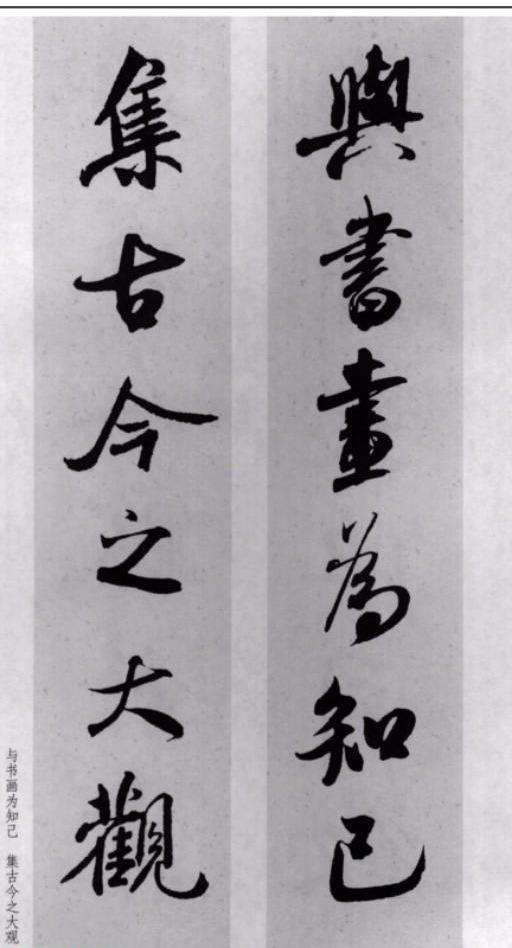 與書畫為知己
集古今之大觀
与书画为知己 集古今之大观